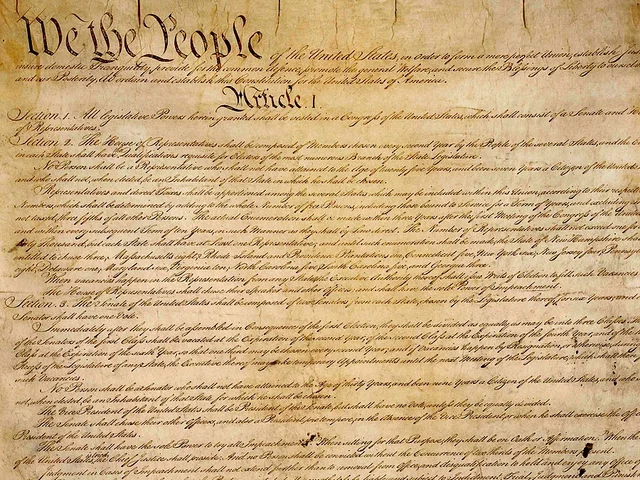 We the People of the United States, in Order to form a more perfect Union, establish
insure domestic Tranquility, provide for the common defence, promote the general Welfare, and secure the Blessings of Liberty to ourselves
and our Posterity, do ordain and establish this Constitution for the United States of America.
Article. I.
Section. 1. All legislative Powers herein granted shall be vested in a Congress of the United States, which shall consist of a Senate and
of Representatives.
Section. 2. The House of Representatives shall be composed of Members chosen every second Year by the People of the several States, and the
in each State shall have Qualifications requisite for Electors of the most numerous Branch of the State Legislature.
No Person shall be a Representative who shall not have attained to the Age of twenty five Years, and been seven Years a Citizen of the United
and who shall not, when elected, be an Inhabitant of that State in which he shall be chosen.
Representatives and direct Taxes shall be apportioned among the several States which may be included within this Union, according to their
Numbers, which shall be determined by adding to the whole Number of free Persons, including those bound to Service for a Term of Years, and excluding
not taxed, three fifths of all other Persons. The actual Enumeration shall be made within three Years after the first Meeting of the Congress of the United
and within every subsequent Term of ten Years, in such Manner as they shall by Law direct. The Number of Representatives shall not exceed one for
thirty Thousand, but each State shall have at Least one Representative; and until such enumeration shall be made, the State of New Hampshire shall
entitled to chuse three, Massachusetts eight, Rhode Island and Providence Plantations one, Connecticut five, New York six, New Jersey four,
eight, Delaware one, Maryland six, Virginia ten, North Carolina five, South Carolina five, and Georgia three.
When vacancies happen in the Representation from any State, the Executive Authority thereof shall issue Writs of Election to fill such Vacancies.
The House of Representatives shall chuse their Speaker and other Officers; and shall have the sole Power of Impeachment.
Section. 3. The Senate of the United States shall be composed of two Senators from each State, chosen by the Legislature thereof, for six Years; and
Senator shall have one Vote.
Immediately after they shall be assembled in Consequence of the first Election, they shall be divided as equally as may be into three Classes.
of the Senators of the first Class shall be vacated at the Expiration of the second Year, of the second Class at the Expiration of the fourth Year, and of the
Class at the Expiration of the sixth Year, so that one third may be chosen every second Year; and if Vacancies happen by Resignation, or otherwise, during
Recess of the Legislature of any State, the Executive thereof may make temporary Appointments until the next Meeting of the Legislature, which shall
such Vacancies.
No Person shall be a Senator who shall not have attained to the Age of thirty Years, and been nine Years a Citizen of the United States, and who
not, when elected, be an Inhabitant of that State for which he shall be chosen.
The Vice President of the United States shall be President of the Senate, but shall have no Vote, unless they be equally divided.
The Senate shall chuse their other Officers, and also a President pro tempore, in the Absence of the Vice President, or when he shall exercise the Office
President of the United States.
The Senate shall have the sole Power to try all Impeachments. When sitting for that Purpose, they shall be on Oath or Affirmation. When the
of the United States is tried, the Chief Justice shall preside: And no Person shall be convicted without the Concurrence of two thirds of the Members present.
Judgment in Cases of Impeachment shall not extend further than to removal from Office, and disqualification to hold and enjoy any Office